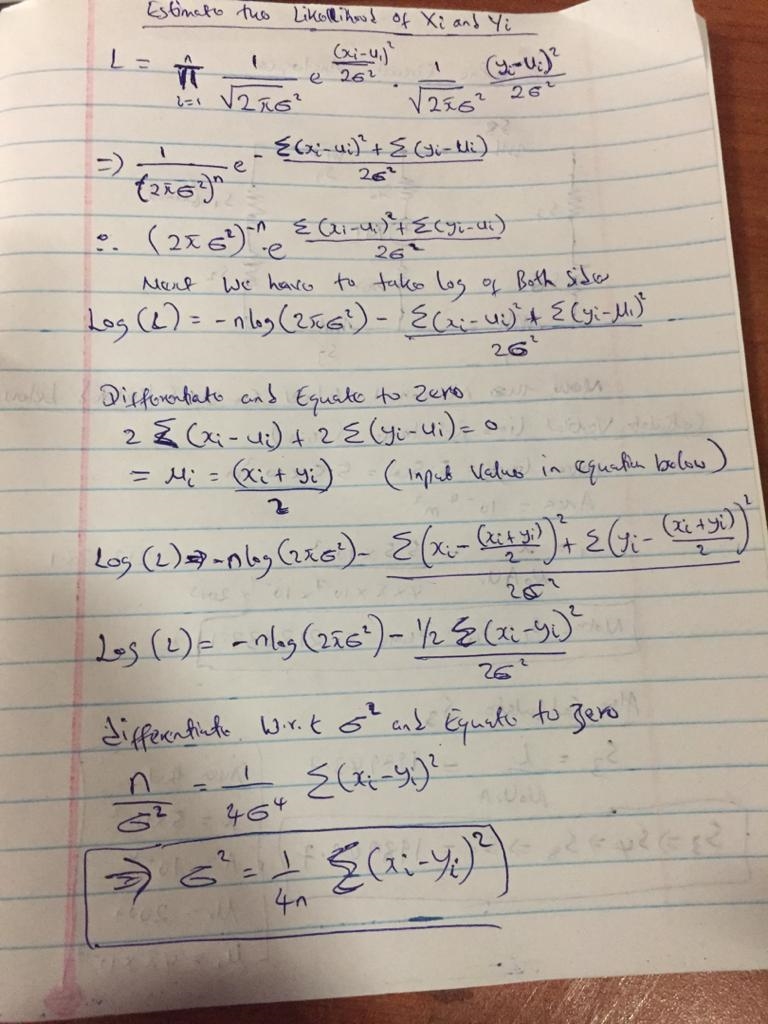 Estimate the Likellihood of Xi and Yi
L = n π i=1 1/√2πσ² e (xi-u1)²/2σ² . 1/√2πσ² (yi-ui)²/2σ²
=> 1/(2πσ²)ⁿ e - Σ(xi-ui)² + Σ(yi-Ui)/2σ²
∴ (2πσ²)⁻ⁿ.e Σ(xi-ui)² + Σ(yi-ui)/2σ²
Next We have to take log of Both Sides
Log(L) = -nlog(2πσ²) - Σ(xi-ui)² + Σ(yi-μi)²/2σ²
Differentiate and Equate to Zero
2 Σ(xi-ui) + 2 Σ(yi-ui) = 0
= μi = (xi+yi)/2 (input values in equation below)
Log(L) => -nlog(2πσ²) - Σ(xi-(xi+yi)/2)² + Σ(yi-(xi+yi)/2)²/2σ²
Log(L) = -nlog(2πσ²) - 1/2 Σ(xi-yi)²/2σ²
differentiate W.r.t σ² and Equate to Zero
n/σ² = 1/4σ⁴ Σ(xi-yi)²
=> σ² = 1/4n Σ(xi-yi)²